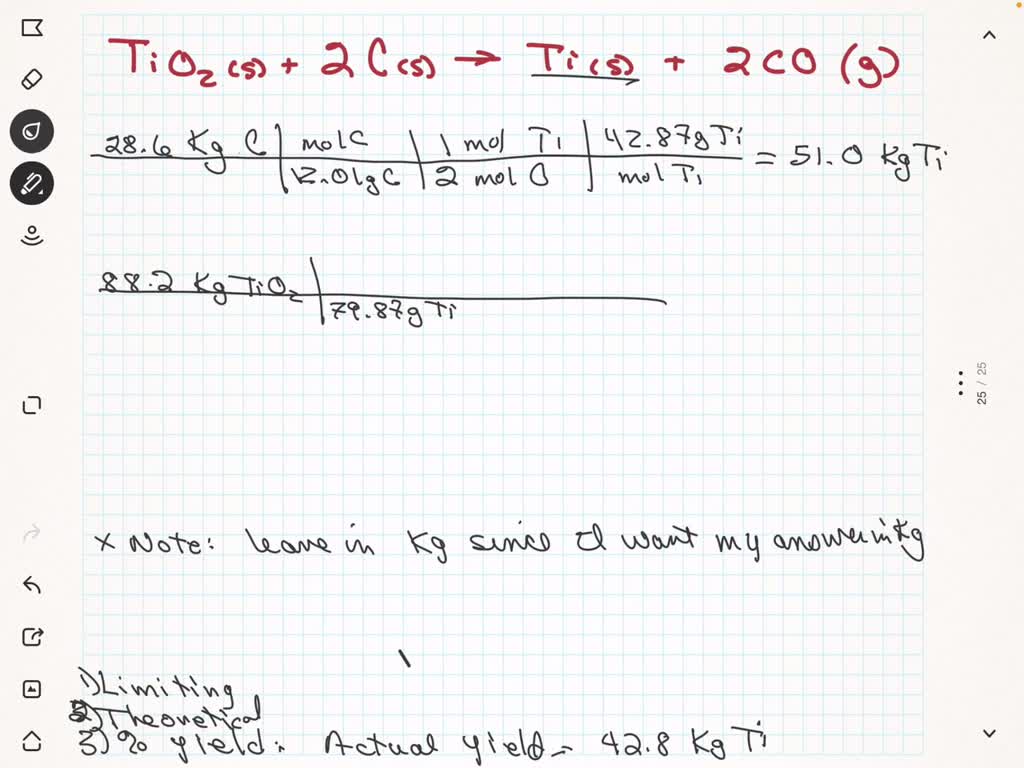 TiO₂(s) + 2C(s) → Ti(s) + 2CO(g)
28.6 Kg C | mol C | 1 mol Ti | 42.87g Ti = 51.0 Kg Ti
12.01g C | 2 mol C | mol Ti
88.2 Kg TiO₂ |
79.87g Ti
25 / 25
* Note: leave in Kg since I want my answer in Kg
1) Limiting
2) Theoretical
3) % yield: Actual yield = 42.8 Kg Ti